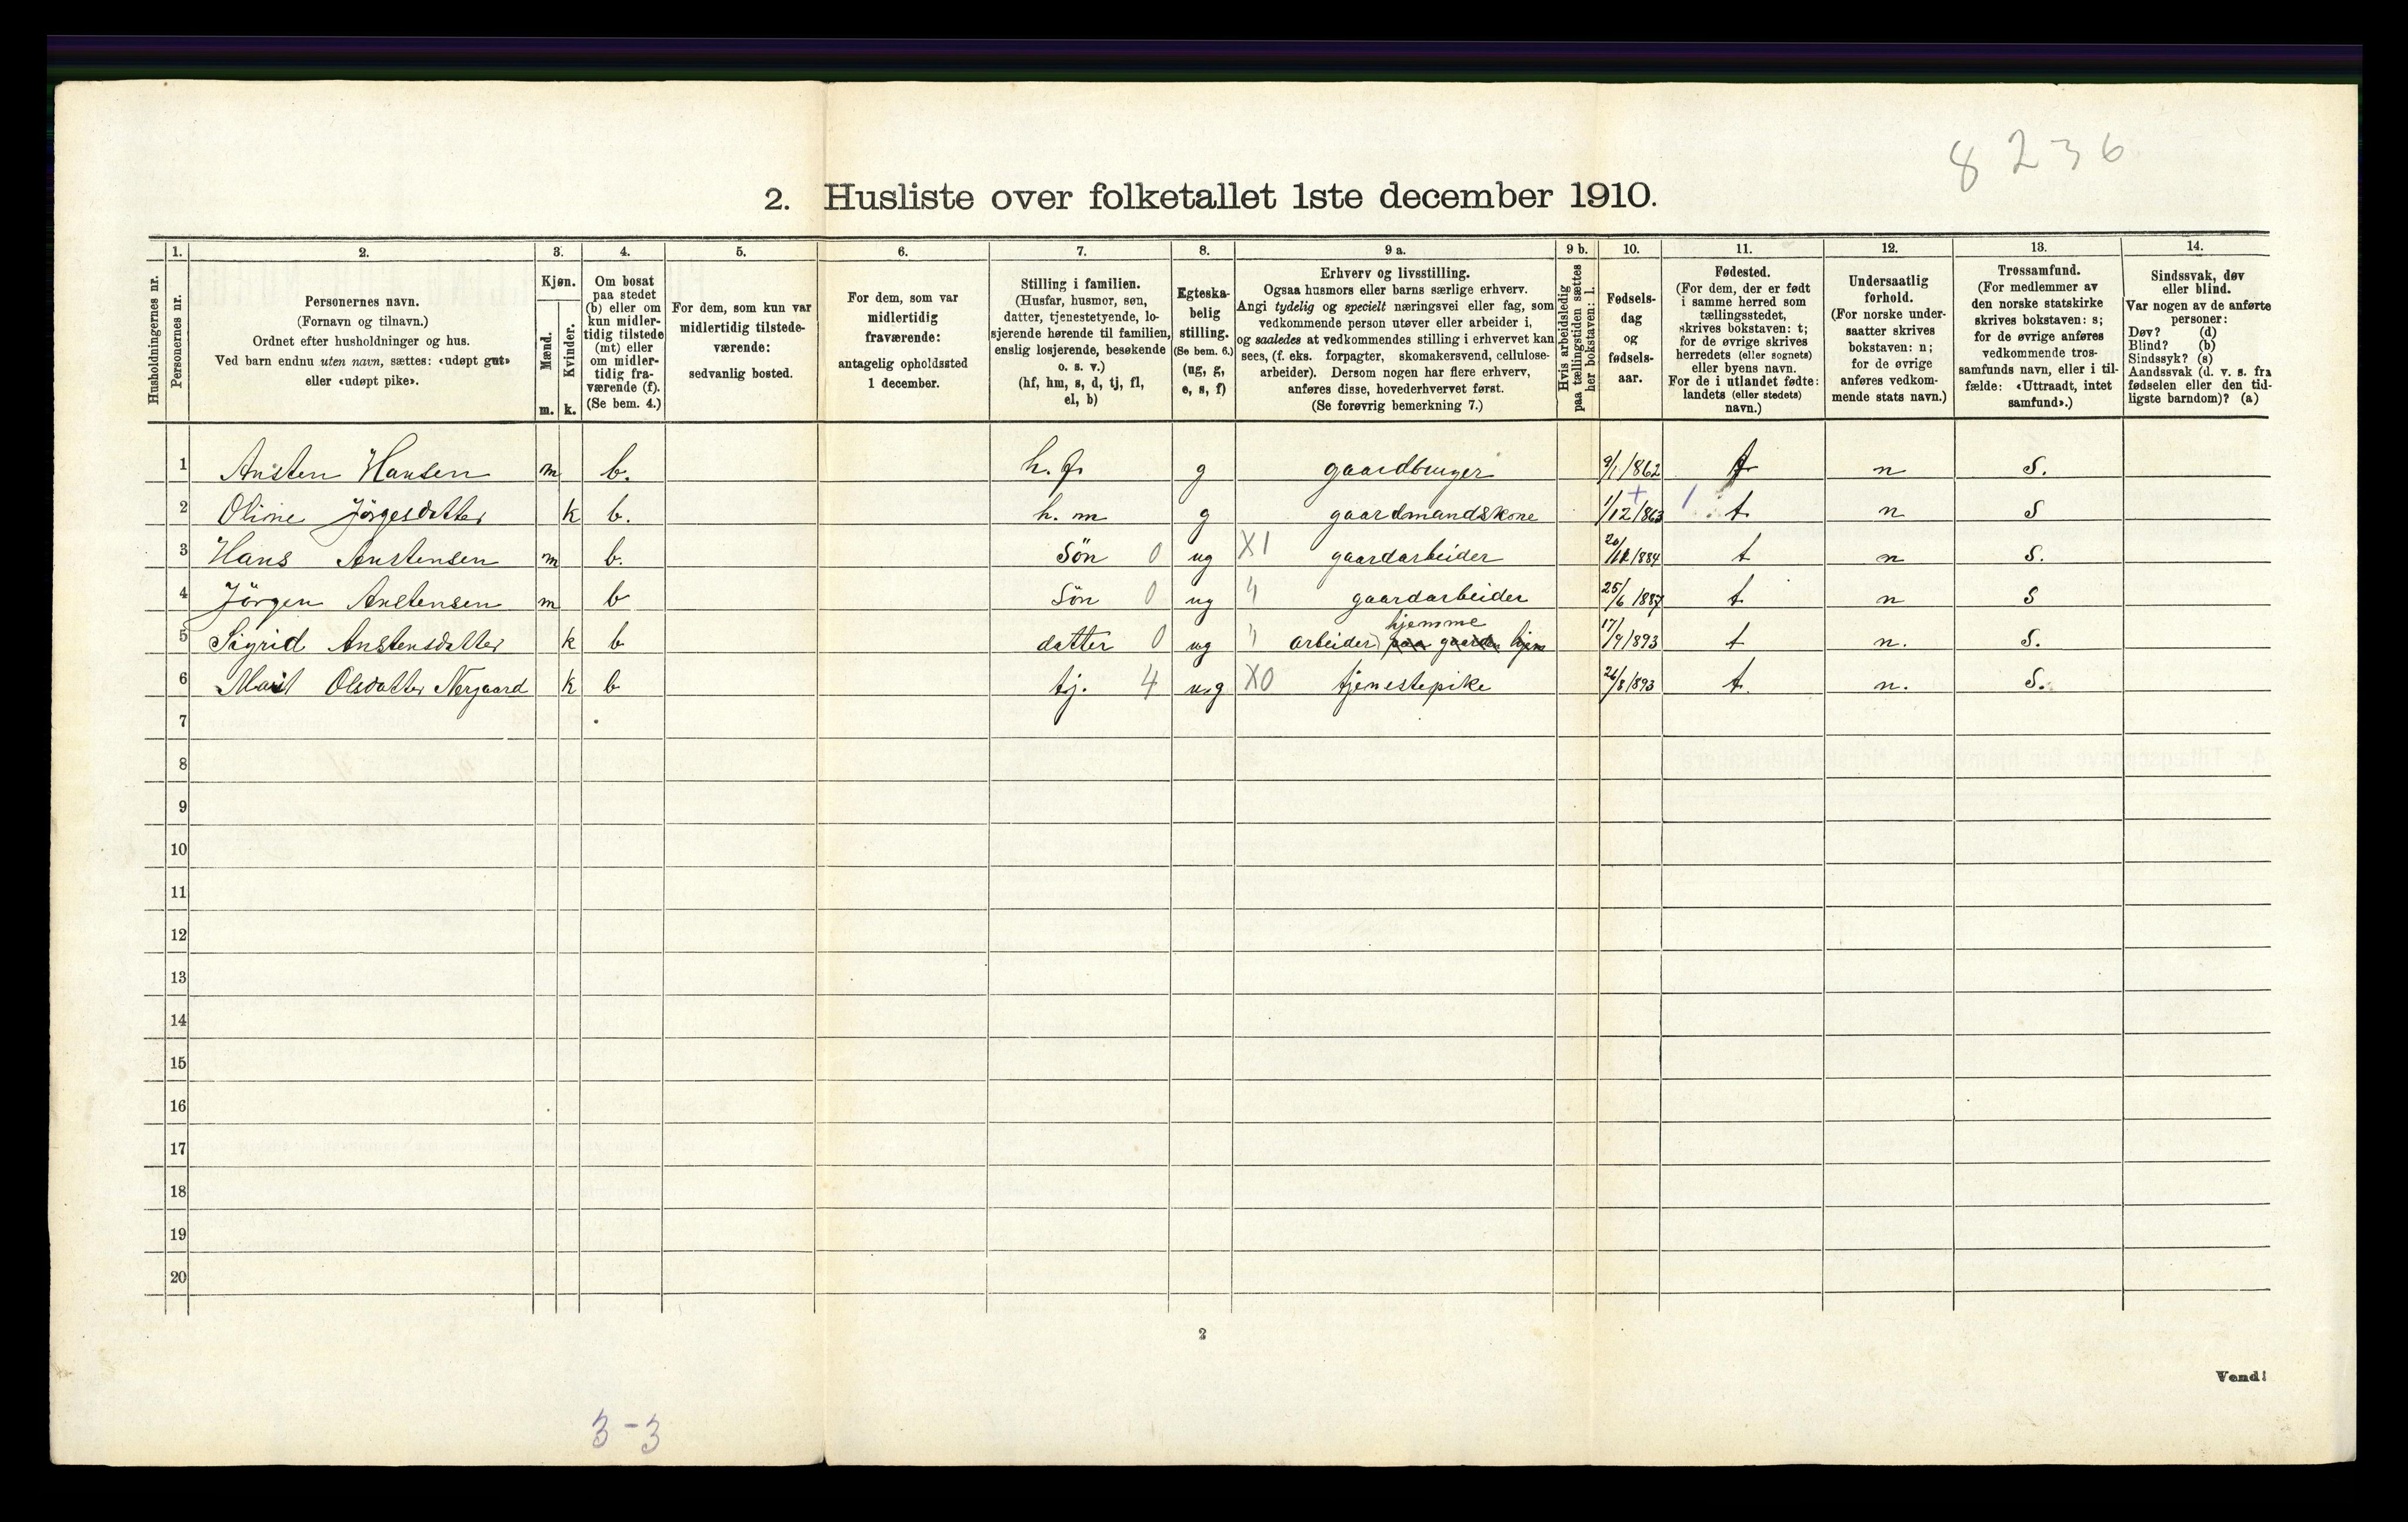 8236
2. Husliste over folketallet 1ste december 1910.
1. 2. 3. 4. 5. 6. 7. 8. 9 a. 9 b. 10. 11. 12. 13. 14.
Husholdningernes nr.
Personernes nr.
Personernes navn.
(Fornavn og tilnavn.)
Ordnet efter husholdninger og hus.
Ved barn endnu uten navn, sættes: «udøpt gut»
eller «udøpt pike».
Kjøn.
Mænd.
Kvinder.
m. k.
Om bosat
paa stedet
(b) eller om
kun midler-
tidig tilstede
(mt) eller
om midler-
tidig fra-
værende (f).
(Se bem. 4.)
For dem, som kun var
midlertidig tilstede-
værende:
sedvanlig bosted.
For dem, som var
midlertidig
fraværende:
antagelig opholdssted
1 december.
Stilling i familien.
(Husfar, husmor, søn,
datter, tjenestetyende, lo-
sjerende hørende til familien,
enslig losjerende, besøkende
o. s. v.)
(hf, hm, s, d, tj, fl,
el, b)
Egteska-
belig
stilling.
(Se bem. 6.)
(ug, g,
e, s, f)
Erhverv og livsstilling.
Ogsaa husmors eller barns særlige erhverv.
Angi tydelig og specielt næringsvei eller fag, som
vedkommende person utøver eller arbeider i,
og saaledes at vedkommendes stilling i erhvervet kan
sees, (f. eks. forpagter, skomakersvend, cellulose-
arbeider). Dersom nogen har flere erhverv,
anføres disse, hovederhvervet først.
(Se forøvrig bemerkning 7.)
Hvis arbeidsledig
paa tællingstiden sættes
her bokstaven: l.
Fødsels-
dag
og
fødsels-
aar.
Fødested.
(For dem, der er født
i samme herred som
tællingsstedet,
skrives bokstaven: t;
for de øvrige skrives
herredets (eller sognets)
eller byens navn.
For de i utlandet fødte:
landets (eller stedets)
navn.)
Undersaatlig
forhold.
(For norske under-
saatter skrives
bokstaven: n;
for de øvrige
anføres vedkom-
mende stats navn.)
Trossamfund.
(For medlemmer av
den norske statskirke
skrives bokstaven: s;
for de øvrige anføres
vedkommende tros-
samfunds navn, eller i til-
fælde: «Uttraadt, intet
samfund».)
Sindssvak, døv
eller blind.
Var nogen av de anførte
personer:
Døv? (d)
Blind? (b)
Sindssyk? (s)
Aandssvak (d. v. s. fra
fødselen eller den tid-
ligste barndom)? (a)
1 Ansten Hansen m b. h. f. g gaardbruger 9/1 1862 t n S.
2 Oline Jörgesdatter k b. h. m g gaardmandskone 1/12 1863 t n S
3 Hans Anstensen m b. Sön 0 ug X1 gaardarbeider 1884 t n S.
4 Jörgen Anstensen m b Sön 0 ug " gaardarbeider 25/6 1887 t n S
hjemme
5 Sigrid Anstensdatter k b datter 0 ug " arbeider paa gaarden hjem 17/9 1893 t n. S.
6 Marit Olsdatter Nergaard k b tj. 4 ug X0 tjenestepike 26/8 1893 t. n. S.
7
8
9
10
11
12
13
14
15
16
17
18
19
20
2
Vend!
3-3